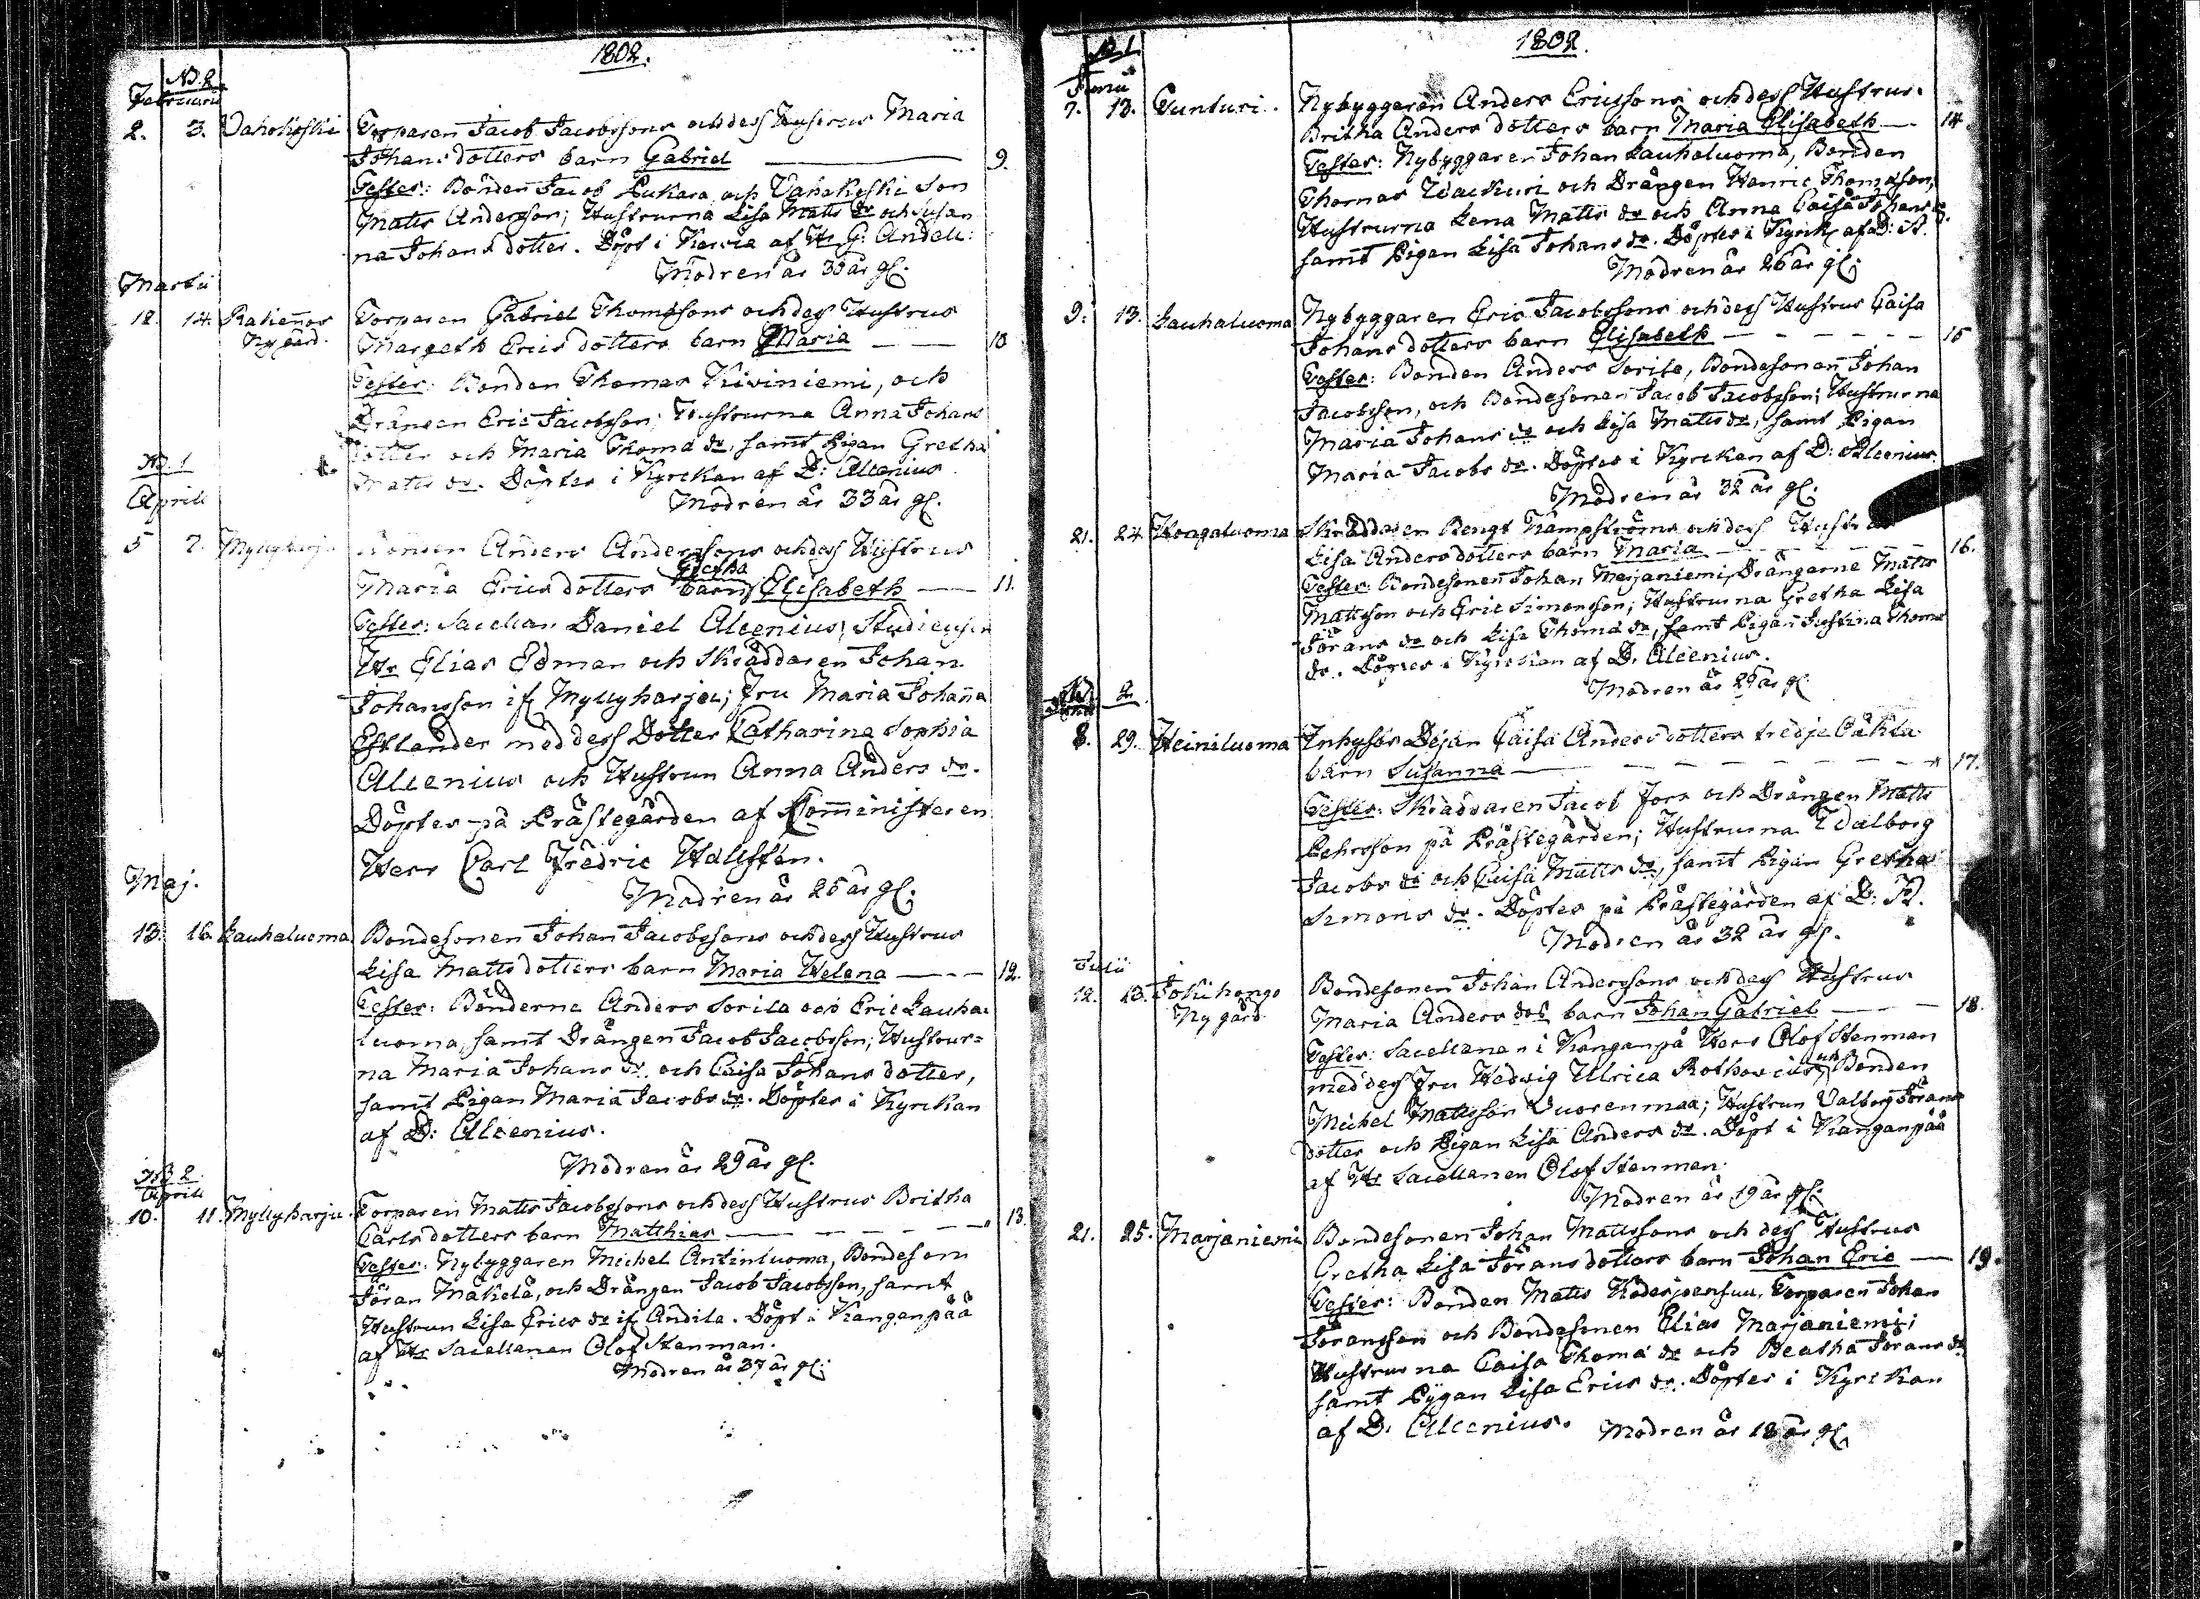 1802.
No. 2
Februarii
2. 3. Vahokoski Torparen Jacob Jacobssons och dess Hustrus Maria
Johans dotters barn Gabriel 9.
Testes: Bonden Jacob Pukara och Vahakoski Son
Matts Andersson; Hustrurna Lisa Matts dr och Susan
na Johans dotter. Döpt i Karvia af Hr G: Andell:
Modren är 30 år gl:
Martii
12. 14. Rahennos Torparen Gabriel Thomassons och dess Hustrus
Nygård. Margeth Erics dotters barn Maria 10
Testes: Bonden Thomas Kiviniemi, och
Drängen Eric Jacobsson; Hustrurna Anna Johans
dotter och Maria Thomæ dr, samt Pigan Gretha
Matts dr. Döptes i Kyrckan af D: Alcenius
Modren är 33 år gl.
No. 1
Aprill
5 7. Myllyharju Bonden Anders Anderssons och dess Hustrus
Gretha
Maria Erics dotters barn Elisabeth 11.
Testes: Sacellan Daniel Alcenius, Studiosen
Hr Elias Edman och Skräddaren Johan
Johansson ifr Myllyharju; Fru Maria Johanna
Estlander med dess Dotter Catharina Sophia
Alcenius och Hustrun Anna Anders dr.
Döptes på Prästegården af Komministeren
Herr Carl Fredric Hallsten.
Modren är 25 år gl:
Maj.
13. 16. Lauhaluoma Bondesonen Johan Jacobssons och dess Hustrus
Lisa Matts dotters barn Maria Helena 12.
Testes: Bönderna Anders Sorila och Eric Lauha-
luoma, samt Drängen Jacob Jacobsson; Hustrur=
na Maria Johans dr. och Caisa Johans dotter,
samt Pigan Maria Jacobs dr. Döptes i Kyrckan
af D: Alcenius.
Modren är 29 år gl.
No 2
Aprill
10. 11. Myllyharju. Torparen Matts Jacobssons och dess Hustrus Britha
Carls dotters barn Matthias 13.
Testes: Nybyggaren Michel Antinluoma, Bondeson
Jöran Mäkelä, och Drängen Jacob Jacobsson, samt
Hustrun Lisa Erics dr ifr Andila. Döpt i Kanganpää
af Hr Sacellanen Olof Stenman.
Modren är 37 år gl:
1802.
No 1.
Junii
7. 13. Tunturi. Nybyggaren Anders Ericssons och dess Hustrus.
Britha Anders dotters barn Maria Elisabeth 14.
Testes: Nybyggaren Johan Lauhaluoma, Bonden
Thomas Wackuri och Drängen Henric Thomasson,
Hustrurna Lena Matts dr och Anna Caisa Johans d.
samt Pigan Lisa Johans dr. Döptes i Kyrk: af D: A.
Modren är 26 år gl:
9: 13. Lauhaluoma Nybyggaren Eric Jacobssons och dess Hustrus Caisa
Johans dotters barn Elisabeth 15
Testes: Bonden Anders Sorila, Bondesonen Johan
Jacobsson, och Bondesonen Jacob Jacobsson; Hustrurna
Maria Johans dr och Lisa Matts dr, samt Pigan
Maria Jacobs dr. Döptes i Kyrckan af D: Alcenius.
Modren är 32 år gl:
21. 24. Hongaluoma Skräddaren Bengt Kampströms och dess Hustrus
Lisa Anders dotters barn Maria 16.
Testes: Bondesonen Johan Marjaniemi, Drängarne Matts
Mattsson och Eric Simonsson; Hustrurna Gretha Lisa
Jörans dr och Lisa Thomæ dr, samt Pigan Justina Thomæ
dr. Döptes i Kyrckan af D. Alcenius.
Modren är 29 år gl
No 2.
Junii
8. 29. Heiniluoma Inhyses Dejan Caisa Anders dotters tredje Oäkta
barn Susanna 17.
Testes: Skräddaren Jacob Fors och Drängen Matts
Pehrsson på Prästegården; Hustrurna Walborg
Jacobs dr och Caisa Matts dr, samt Pigan Gretha
Simons dr. Döptes på Prästegården af D: A.
Modren är 32 år gl.
Julii
12. 13. Jokihonga Bondesonen Johan Anderssons och dess Hustrus
Nygård Maria Anders dotr barn Johan Gabriel 18.
Testes: Sacellanen i Kanganpä Herr Olof Stenman
med dess Fru Hedwig Ulrica Rothovius och Bonden
Michel Mattsson Vuorenmaa; Hustrun Valborg Jörans
dotter och Pigan Lisa Anders dr. Döpt i Kanganpää
af Hr Sacellanen Olof Stenman.
Modren är 19 år gl:
21. 25. Marjaniemi Bondesonen Johan Mattssons och dess Hustrus
Gretha Lisa Jörans dotters barn Johan Eric 19.
Testes: Bonden Matts Koderjoensuu, Torparen Johan
Jöransson och Bondesonen Elias Marjaniemi;
Hustrurna Caisa Thomæ dr och Beatha Jörans dr
samt Pygan Lisa Erics dr. Döptes i Kyrckan
af D. Alcenius. Modren är 18 år gl.